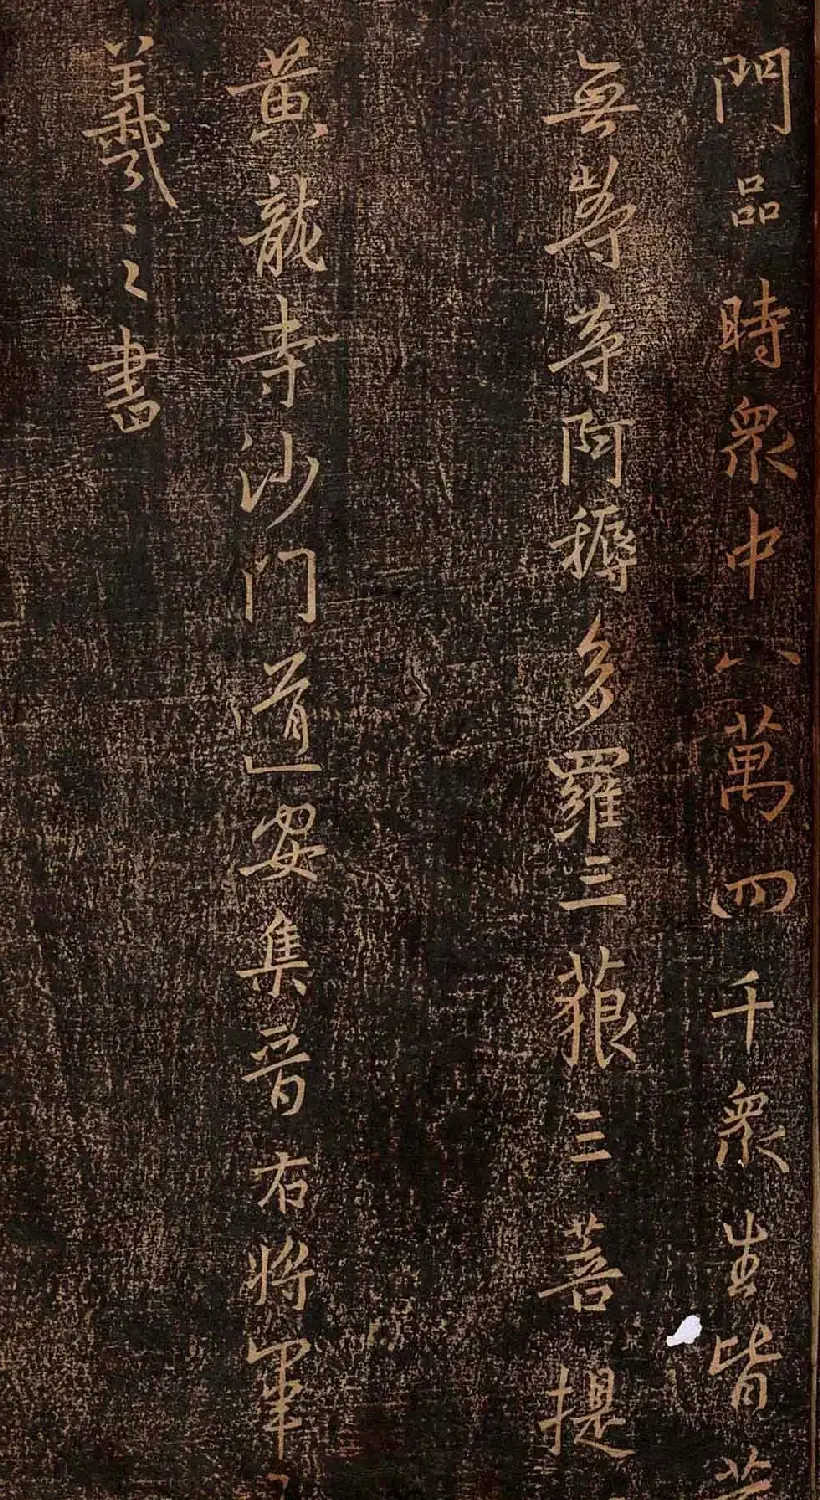 門品時眾中八萬四千眾生皆
無等等阿耨多羅三藐三菩提
黃龍寺沙門道安集晉右將軍
羲之書